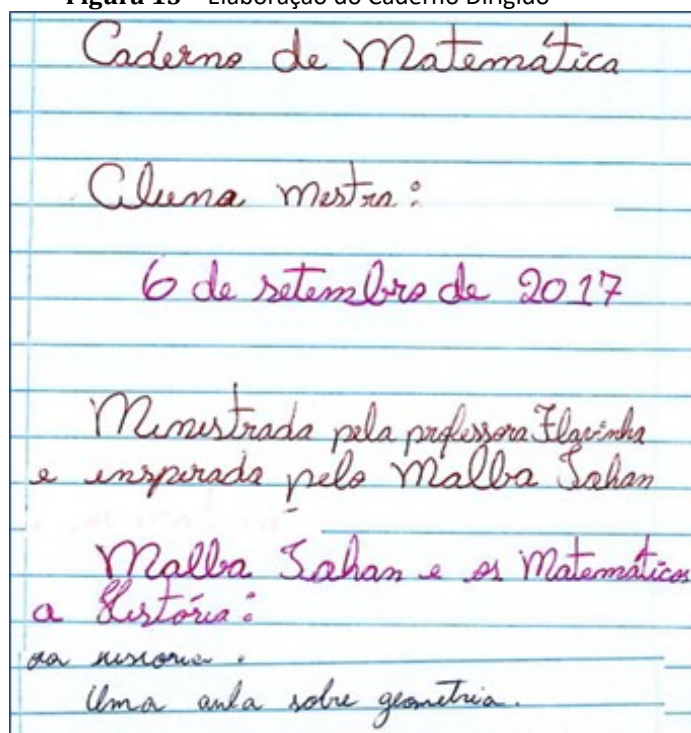 Figura 13 – Elaboração do Caderno Dirigido
Caderno de Matemática
Aluna mestra:
6 de setembro de 2017
Ministrada pela professora Flavinha
e inspirada pelo Malba Tahan
Malba Tahan e os Matemáticos
a História:
da história.
Uma aula sobre geometria.